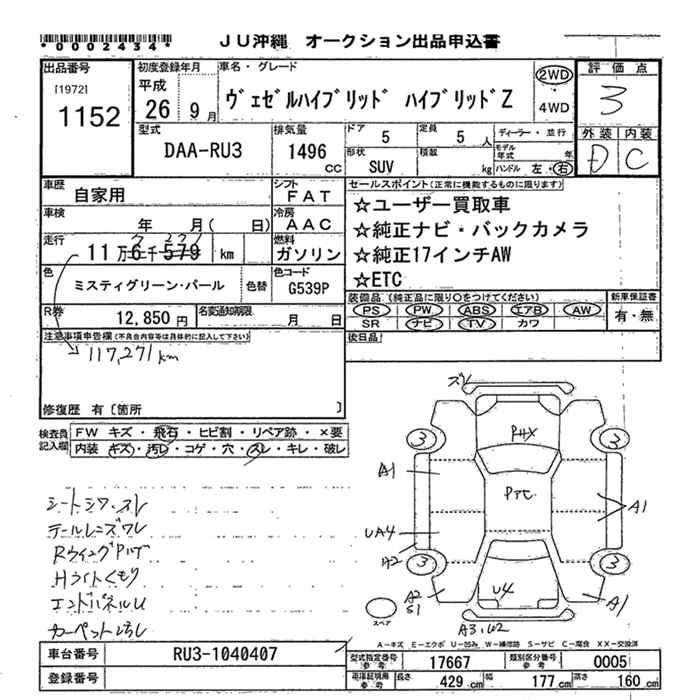 *0002434*
JU沖縄 オークション出品申込書
出品番号
[1972]
1152
初度登録年月
平成
26 9月
車名・グレード
ヴェゼルハイブリッド ハイブリッドZ
2WD
4WD
評価点
3
外装 内装
D C
型式
DAA-RU3
排気量
1496
CC
ドア 5
定員 5 人
形状
SUV
積載
kg
ディーラー・並行
モデル年式 年
ハンドル 左・右
車歴
自家用
シフト
FAT
車検
年 月( 日)
冷房
AAC
走行
7 271
11万6千579 km
燃料
ガソリン
色
ミスティグリーン・パール
色替
色コード
G539P
R券
12,850円
名変通知期限
月 日
セールスポイント(正常に機能するものに限ります)
☆ユーザー買取車
☆純正ナビ・バックカメラ
☆純正17インチAW
☆ETC
装備品(純正品に限り○をつけてください)
PS PW ABS エアB AW
SR ナビ TV カワ
新車保証書
有・無
後日品
注意事項申告欄(不具合内容等は具体的に記入して下さい)
117,271km
修復歴 有[箇所 ]
検査員記入欄
FW キズ・飛石・ヒビ割・リペア跡・×要
内装 キズ・汚レ・コゲ・穴・スレ・キレ・破レ
シートシワ、スレ
テールレンズワレ
RウイングPハゲ
Hライトくもり
エンドパネルU
カーペット汚レ
ズレ
3
3
A1
A1
UA4
A2
3
3
A2
S1
U4
A1
A3、U2
スペア
A-キズ E-エクボ U-凹み W-補修跡 S-サビ C-腐食 XX-交換済
車台番号
RU3-1040407
登録番号
型式指定番号
参考
17667
類別区分番号
参考
0005
車庫証明用
参考
長さ 429 cm
幅 177 cm
高さ 160 cm